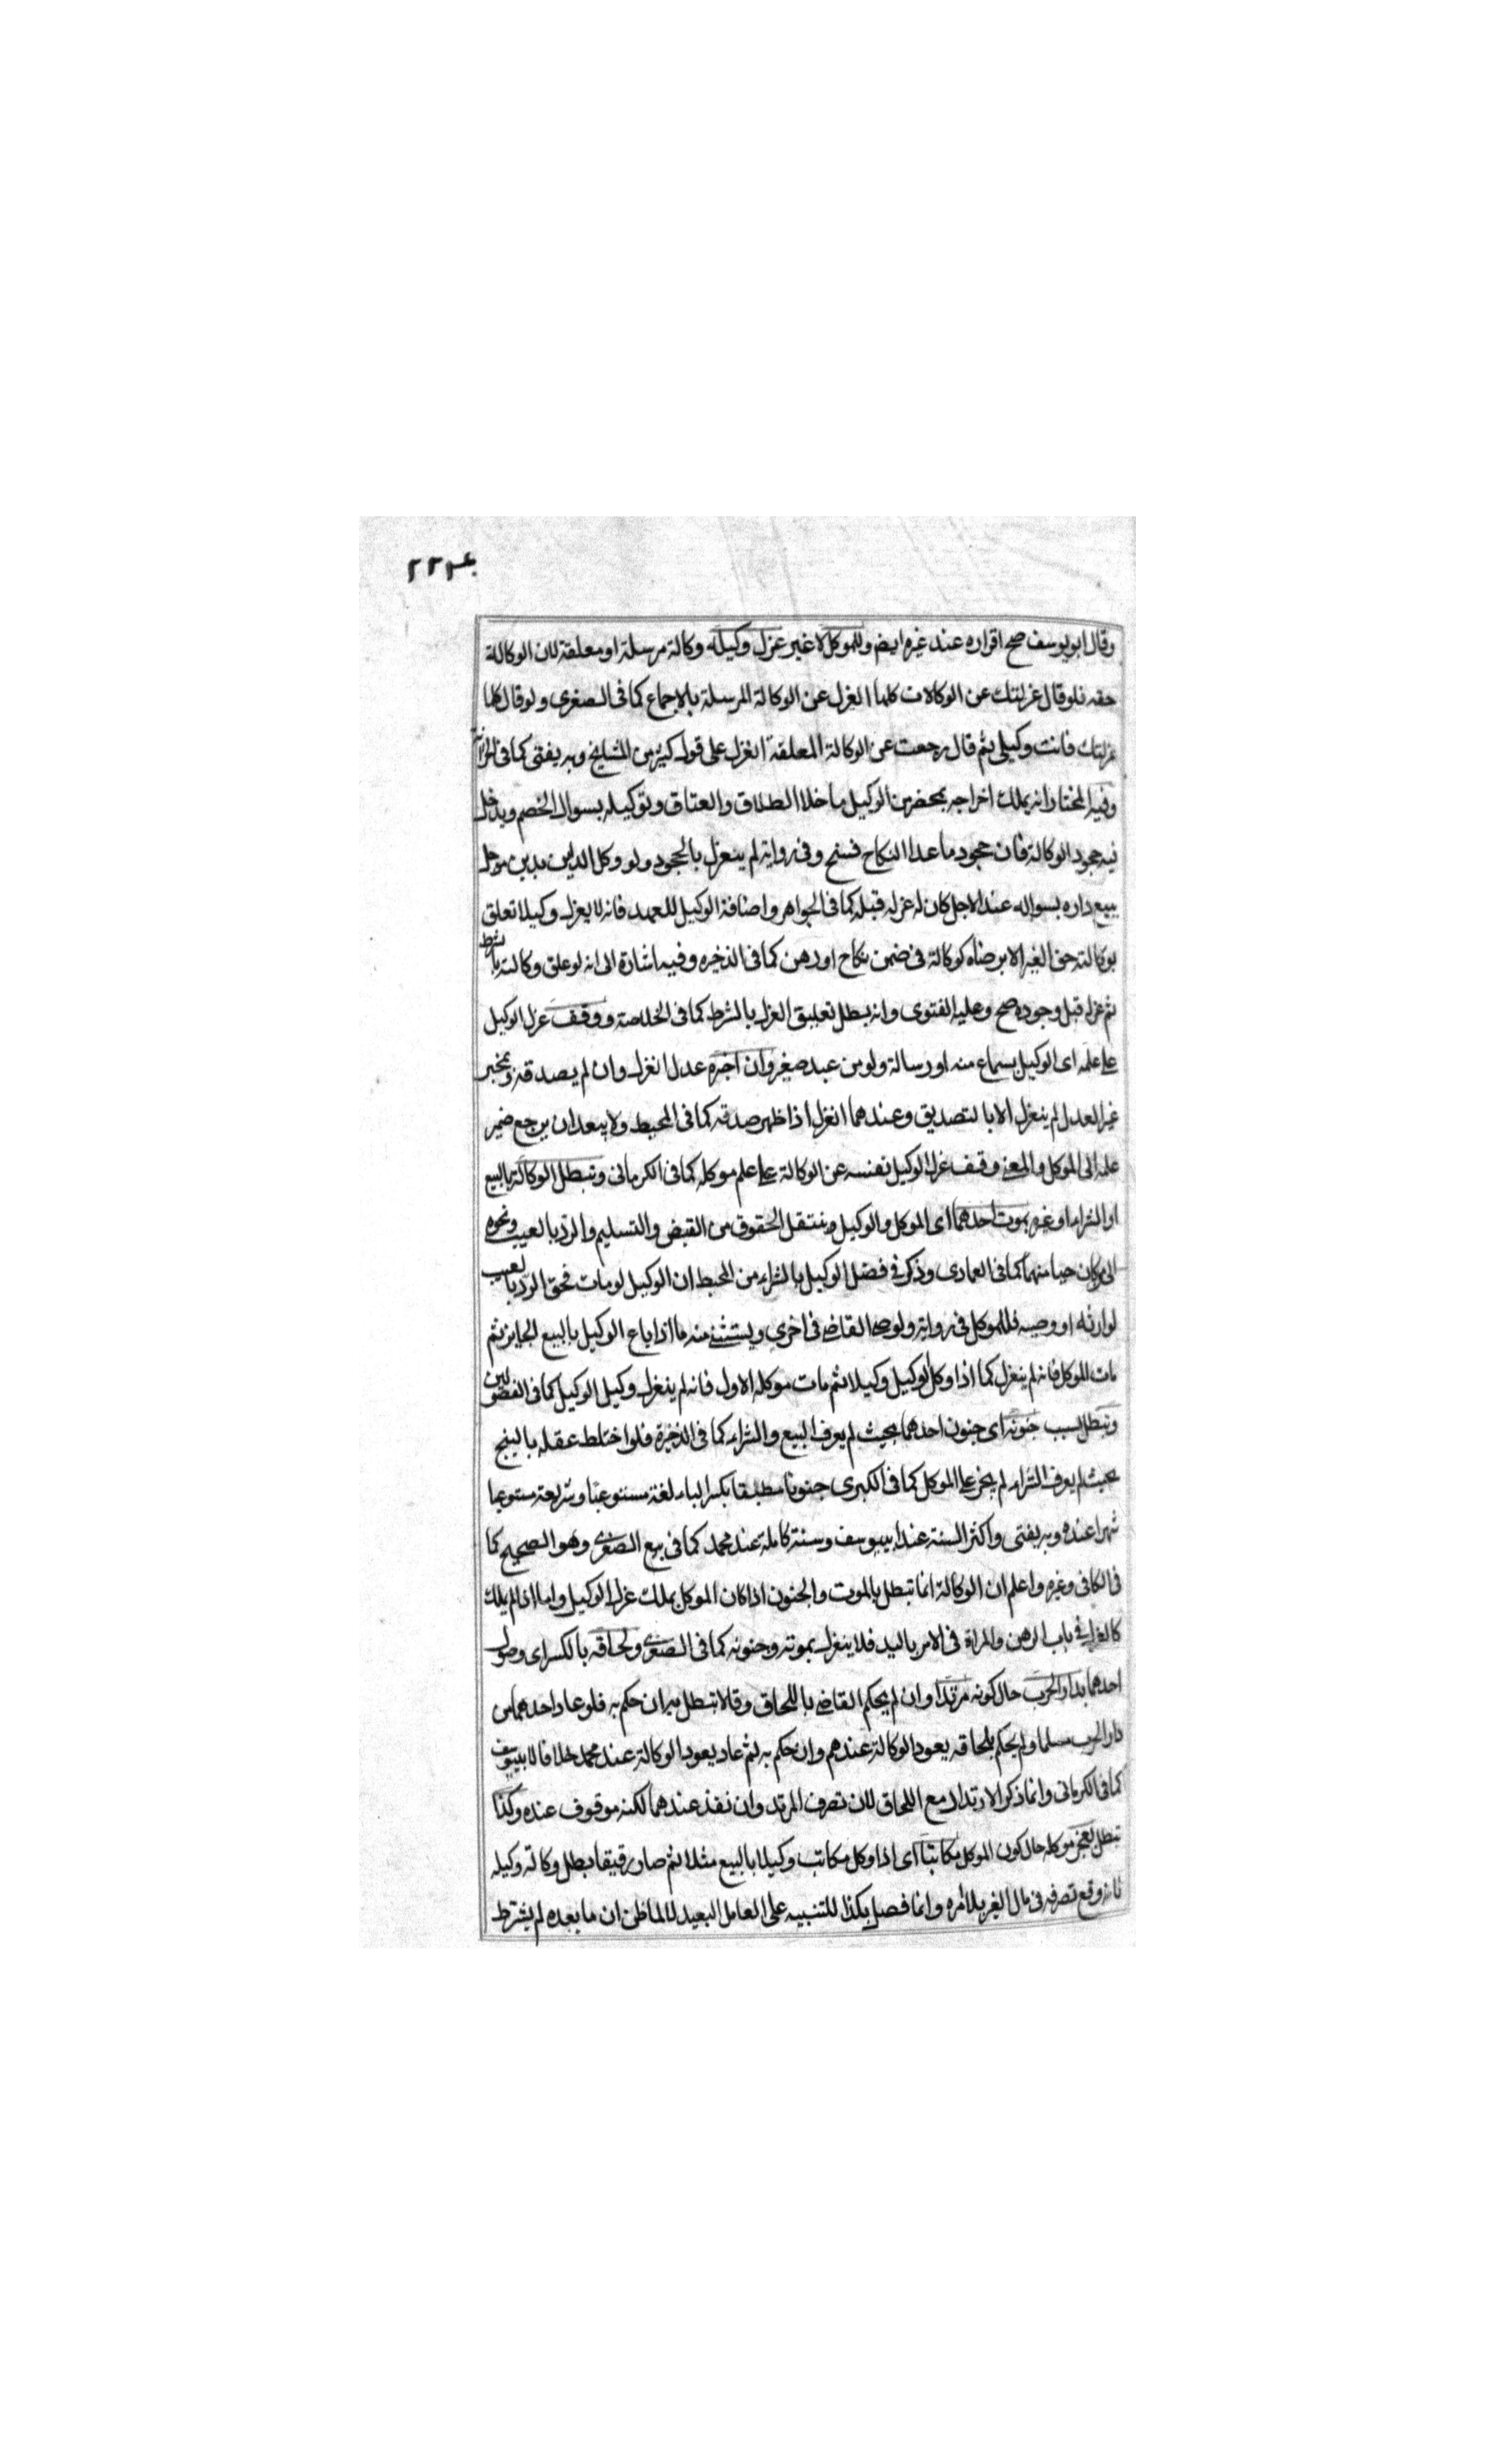 ٢٢٣
وقال ابو يوسف صح اقراره عند غيره ايضم وللموكل لا غير عزل وكيله وكالة مرسلة او معلقة لان الوكالة
حقه فلو قال عزلتك عن الوكالات كلها انعزل عن الوكالة المرسلة بالاجماع كما فى الصغرى ولو قال كلما
عزلتك فانت وكيلى ثم قال رجعت عن الوكالة المعلقة انعزل على قول كثير من المشايخ وبه يفتى كما فى الخزانة
وفيه المختار انه يملك اخراجه بمحضر من الوكيل ما خلا الطلاق والعتاق وتوكيله بسوال الخصم ويدخل
فيه جحود الوكالة فان جحود ما عدا النكاح فسخ وفى رواية لم ينعزل بالجحود ولو وكل الداين مديون موجل
ببيع داره بسواله عند الاجل كان له عزله قبله كما فى الجواهر واضافة الوكيل للعهد فانه لا يعزل وكيلا تعلق
بوكالته حق الغير الا برضاه كوكالة فى ضمن نكاح او رهن كما فى الذخيره وفيه اشارة الى انه لو علق وكالته بالشرط
ثم عزله قبل وجوده صح وعليه الفتوى وانه بطل تعليق العزل بالشرط كما فى الخلاصة ووقف عزل الوكيل
على علمه اى الوكيل بسماع منه او رسالة ولو من عبد صغير وان اخبره عدل انعزل وان لم يصدقه وبخبر
غير العدل لم ينعزل الا بالتصديق وعندهما انعزل اذا ظهر صدقه كما فى المحيط ولا يبعد ان يرجع ضمير
علمه الى الموكل والمعنى وقف عزل الوكيل نفسه عن الوكالة على علم موكله كما فى الكرمانى وتبطل الوكالة بالبيع
او الشراء او غيره بموت احدهما اى الموكل والوكيل وينتقل الحقوق من القبض والتسليم والرد بالعيب ونحوه
الى من كان حيا منهما كما فى العمادى وذكر فى فصل الوكيل بالشراء من المحيط ان الوكيل لو مات فحق الرد بالعيب
لوارثه او وصيه فللموكل فى رواية ولوصى القاضى فى اخرى ويستثنى منه ما اذا باع الوكيل بالبيع الجايز ثم
مات الموكل فانه لم ينعزل كما اذا وكل الوكيل وكيلا ثم مات موكله الاول فانه لم ينعزل وكيل الوكيل كما فى الفصولين
وتبطل بسبب جنونه اى جنون احدهما بحيث لم يعرف البيع والشراء كما فى الذخيرة فلو اختلط عقله بالبنج
بحيث لم يعرف الشراء لم يجز على الموكل كما فى الكبرى جنونا مطبقا بكسر الباء لغة مستوعبا وشريعة مستوعبا
شهرا عنده وبه يفتى واكثر السنة عند ابيوسف وسنة كاملة عند محمد كما فى بيع الصغرى وهو الصحيح كما
فى الكافى وغيره واعلم ان الوكالة انما تبطل بالموت والجنون اذا كان الموكل يملك عزل الوكيل واما اذا لم يملك
كالعدل فى باب الرهن والمراة فى الامر باليد فلا ينعزل بموته وجنونه كما فى الصغرى ولحاقه بالكسر اى وصول
احدهما بدار الحرب حال كونه مرتدا وان لم يحكم القاضى باللحاق وقالا تبطل به ان حكم به فلو عاد احدهما من
دار الحرب مسلما ولم يحكم بلحاقه يعود الوكالة عندهم وان حكم به ثم عاد يعود الوكالة عند محمد خلافا لابيوسف
كما فى الكرمانى وانما ذكر الارتداد مع اللحاق لان تصرف المرتد وان نفذ عندهما لكنه موقوف عنده وكذا
تبطل بعجز موكله حال كون الموكل مكاتبا اى اذا وكل مكاتب وكيلا بالبيع مثلا ثم صار رقيقا بطل وكالة وكيله
فانه وقع تصرفه فى مال الغير بلا امره وانما فصل بكذا للتنبيه على العامل البعيد لا لما ظن ان ما بعده لم يشترط